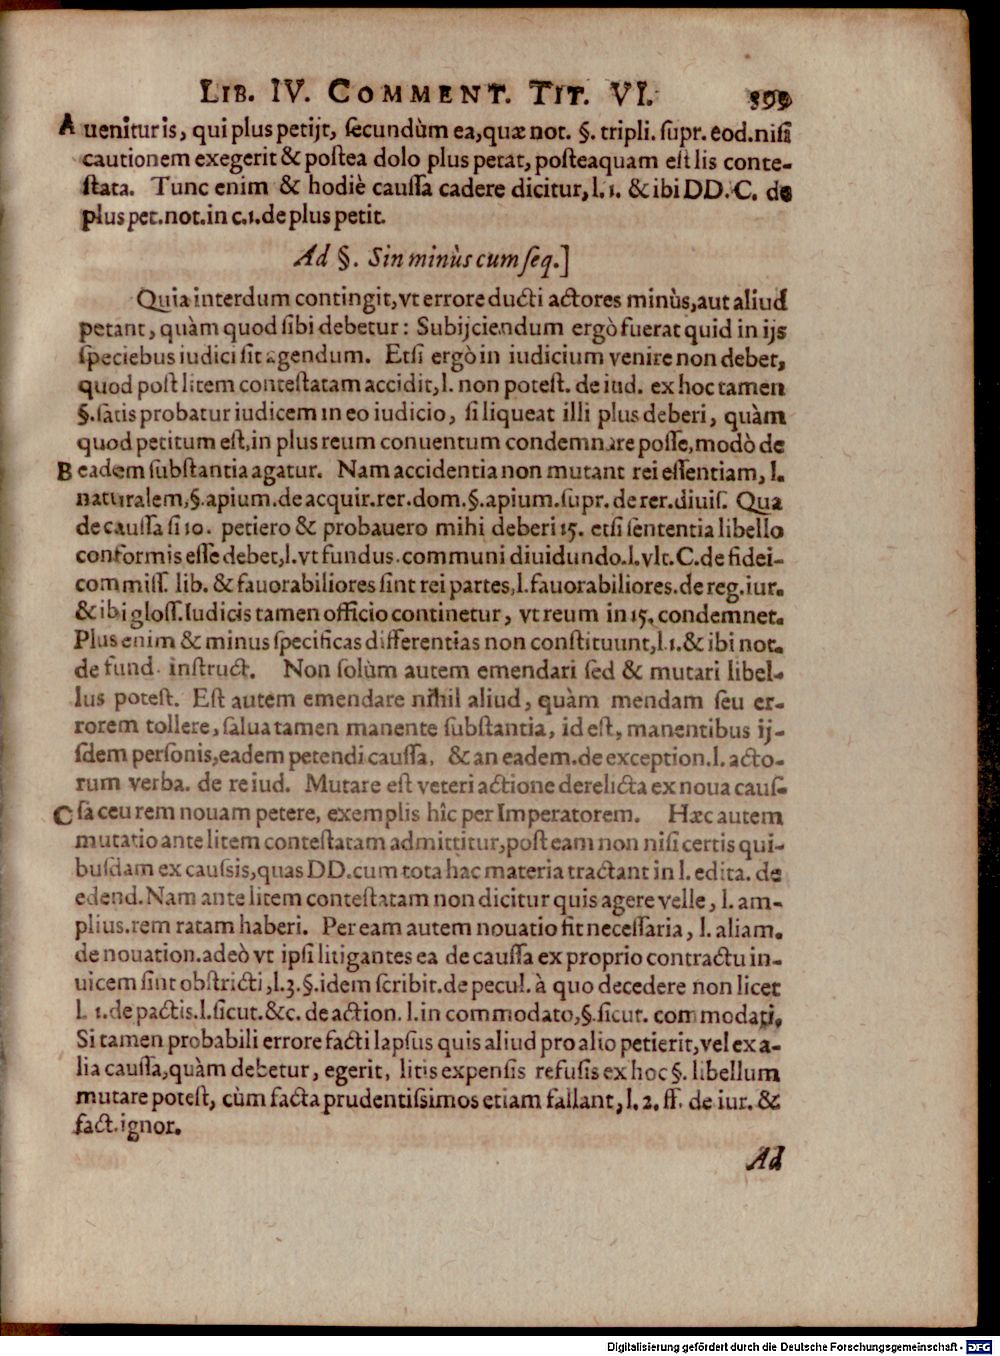 LIB. IV. COMMENT. TIT. VI. 399
A uenitur is, qui plus petijt, secundùm ea, quæ not. §. tripli. supr. eod. nisi
cautionem exegerit & postea dolo plus petat, posteaquam est lis conte-
stata. Tunc enim & hodiè caussa cadere dicitur, l. 1. & ibi DD. C. de
plus pet. not. in c. 1. de plus petit.
Ad §. Sin minùs cum seq.]
Quia interdum contingit, vt errore ducti actores minùs, aut aliud
petant, quàm quod sibi debetur: Subijciendum ergò fuerat quid in ijs
speciebus iudici sit agendum. Etsi ergò in iudicium venire non debet,
quod post litem contestatam accidit, l. non potest. de iud. ex hoc tamen
§. satis probatur iudicem in eo iudicio, si liqueat illi plus deberi, quàm
quod petitum est, in plus reum conuentum condemnare posse, modò de
B eadem substantia agatur. Nam accidentia non mutant rei essentiam, l.
naturalem, §. apium. de acquir. rer. dom. §. apium. supr. de rer. diuis. Qua
de caussa si 10. petiero & probauero mihi deberi 15. etsi sententia libello
conformis esse debet, l. vt fundus. communi diuidundo. l. vlt. C. de fidei-
commiss. lib. & fauorabiliores sint rei partes, l. fauorabiliores. de reg. iur.
& ibi gloss. Iudicis tamen officio continetur, vt reum in 15. condemnet.
Plus enim & minus specificas differentias non constituunt, l. 1. & ibi not.
de fund. instruct. Non solùm autem emendari sed & mutari libel-
lus potest. Est autem emendare nihil aliud, quàm mendam seu er-
rorem tollere, salua tamen manente substantia, id est, manentibus ij-
sdem personis, eadem petendi caussa, & an eadem. de exception. l. acto-
rum verba. de re iud. Mutare est veteri actione derelicta ex noua caus-
C sa ceu rem nouam petere, exemplis hîc per Imperatorem. Hæc autem
mutatio ante litem contestatam admittitur, post eam non nisi certis qui-
busdam ex caussis, quas DD. cum tota hac materia tractant in l. edita. de
edend. Nam ante litem contestatam non dicitur quis agere velle, l. am-
plius. rem ratam haberi. Per eam autem nouatio fit necessaria, l. aliam.
de nouation. adeò vt ipsi litigantes ea de caussa ex proprio contractu in-
uicem sint obstricti, l. 3. §. idem scribit. de pecul. à quo decedere non licet
l. 1. de pactis. l. sicut. &c. de action. l. in commodato, §. sicut. commodati,
Si tamen probabili errore facti lapsus quis aliud pro alio petierit, vel ex a-
lia caussa, quàm debetur, egerit, litis expensis refusis ex hoc §. libellum
mutare potest, cùm facta prudentissimos etiam fallant, l. 2. ff. de iur. &
fact. ignor.
Ad
Digitalisierung gefördert durch die Deutsche Forschungsgemeinschaft - DFG